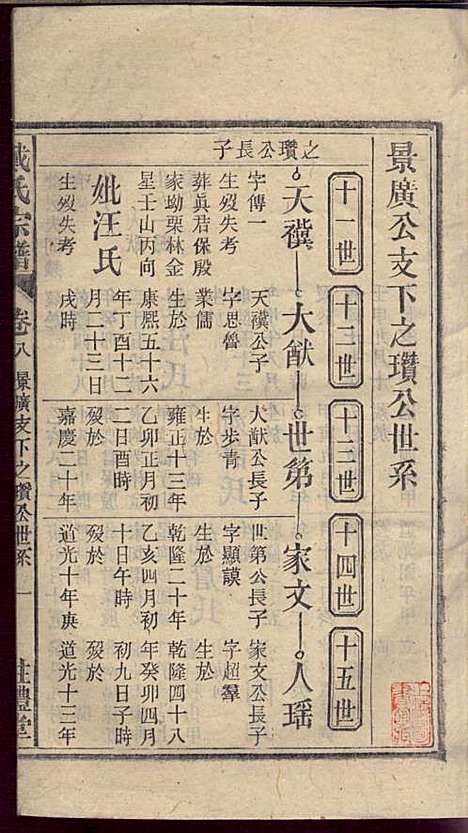 景廣公支下之瓚公世系
十一世
十二世
十三世
十四世
十五世
之瓚公長子
天禩
大猷
世第
家文
人瑤
字傳一
生歿失考
葬眞君保殿
家坳栗林金
星壬山丙向
妣汪氏
生歿失考
天禩公子
字思魯
業儒
生於
康熙五十六
年丁酉十二
月二十三日
戌時
大猷公長子
字步青
生於
雍正十三年
乙卯正月初
二日酉時
歿於
嘉慶二十年
世第公長子
字顯謨
生於
乾隆二十年
乙亥四月初
十日午時
歿於
道光十年庚
家文公長子
字超羣
生於
乾隆四十八
年癸卯四月
初九日子時
歿於
道光十三年
戴氏宗譜
卷八
景廣支下之瓚公世系
一
註禮堂